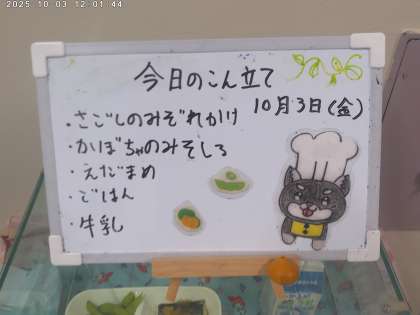 2025 10 03 12 01:44
今日のこん立て
10月3日(金)
・さごしのみぞれかけ
・かぼちゃのみそしる
・えだまめ
・ごはん
・牛乳